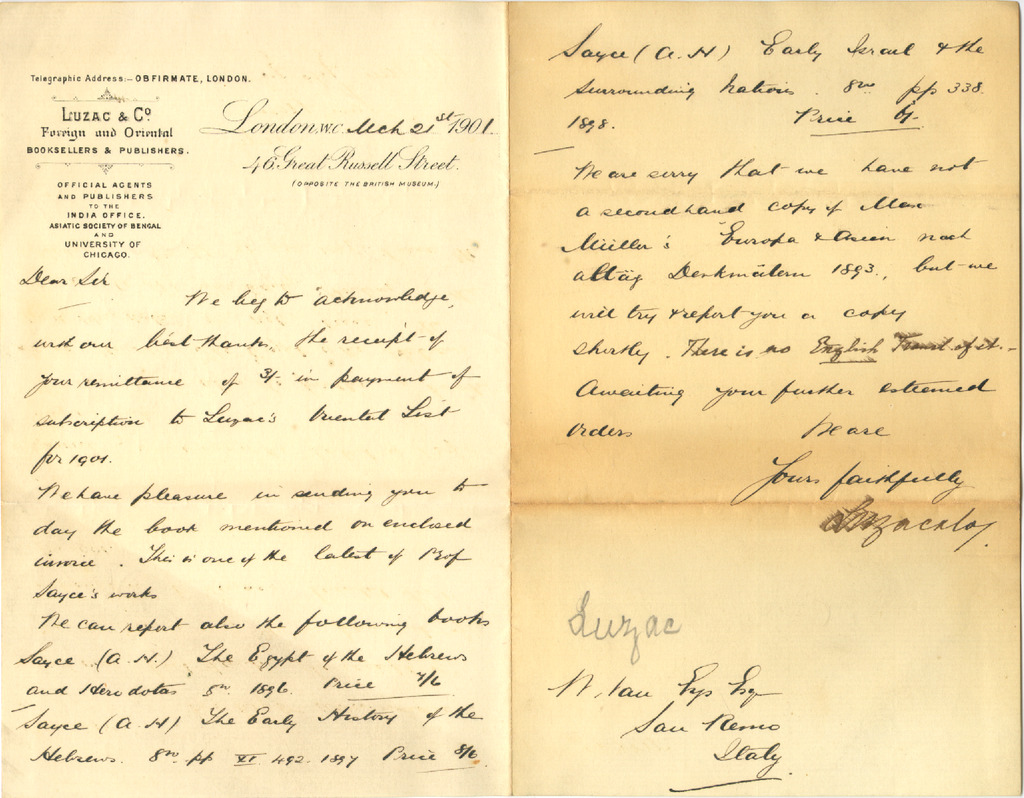 Telegraphic Address:- OBFIRMATE, LONDON.
LUZAC & Co
Foreign and Oriental
BOOKSELLERS & PUBLISHERS.
OFFICIAL AGENTS
AND PUBLISHERS
TO THE
INDIA OFFICE.
ASIATIC SOCIETY OF BENGAL
AND
UNIVERSITY OF
CHICAGO.
London W.C. Mch 21st 1901.
46, Great Russell Street.
(OPPOSITE THE BRITISH MUSEUM.)
Dear Sir
We beg to acknowledge,
with our best thanks, the receipt of
your remittance of 3/- in payment of
subscription to Luzac's Oriental List
for 1901.
We have pleasure in sending you to
day the book mentioned on enclosed
invoice. This is one of the latest of Prof
Sayce's works
We can report also the following books
Sayce (A.H.) The Egypt of the Hebrews
and Herodotas 8vo 1896. Price 7/6
Sayce (A.H) The Early History of the
Hebrews. 8vo pp XI. 492. 1897 Price 8/6
Sayce (A.H) Early Israel & the
surrounding Nations. 8vo pp 338.
1898. Price 6/-
We are sorry that we have not
a secondhand copy of Max
Müller's Europa & Asien nach
altäg Denkmälern 1893., but we
will try & report you a copy
shortly. There is no English Transl. of it.-
Awaiting your further esteemed
orders We are
Yours faithfully
Luzac & Co.
Luzac
Esq
San Remo
Italy